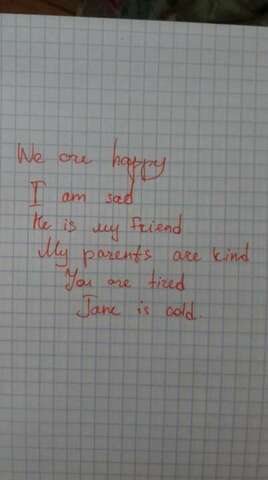 We are happy
I am sad
He is my friend
My parents are kind
You are tired
Jane is cold.